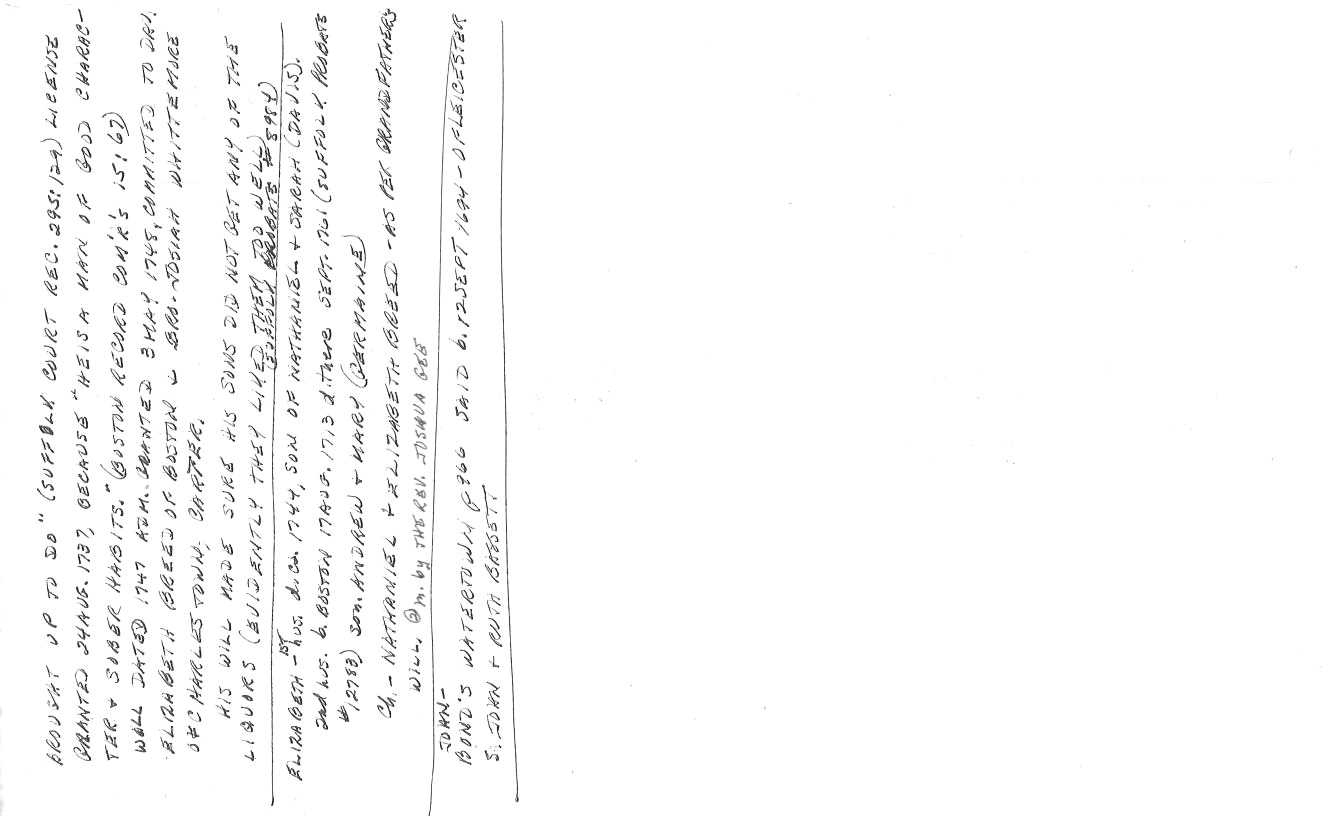 BROUGHT UP TO DO" (SUFFOLK COURT REC. 295:129) LICENSE
GRANTED 24 AUG. 1737, BECAUSE "HE IS A MAN OF GOOD CHARAC-
TER & SOBER HABITS." (BOSTON RECORD COM'R'S 15:67)
WILL DATED 1747 ADM. GRANTED 3 MAY 1748, COMMITTED TO DAU.
ELIZABETH (BREED OF BOSTON & BRO. JOSIAH WHITTEMORE
OF CHARLESTOWN, CARTER.
HIS WILL MADE SURE HIS SONS DID NOT GET ANY OF THE
LIQUORS (EVIDENTLY THEY LIKED THEM TOO WELL)
(SUFFOLK PROBATE # 8984)
ELIZABETH - 1ST HUS. d. ca. 1744, SON OF NATHANIEL & SARAH (DAVIS).
2nd HUS. b. BOSTON 17 AUG. 1713 d. there SEPT. 1761 (SUFFOLK PROBATE
#12783) SON. ANDREW & MARY (GERMAINE)
Ch. - NATHANIEL & ELIZABETH BREED - AS PER GRANDFATHERS
WILL. @ m. by THE REV. JOSHUA GEE
JOHN -
BOND'S WATERTOWN p 366 SAID b. 12 SEPT 1694 - OF LEICESTER
S. JOHN & RUTH BASSETT